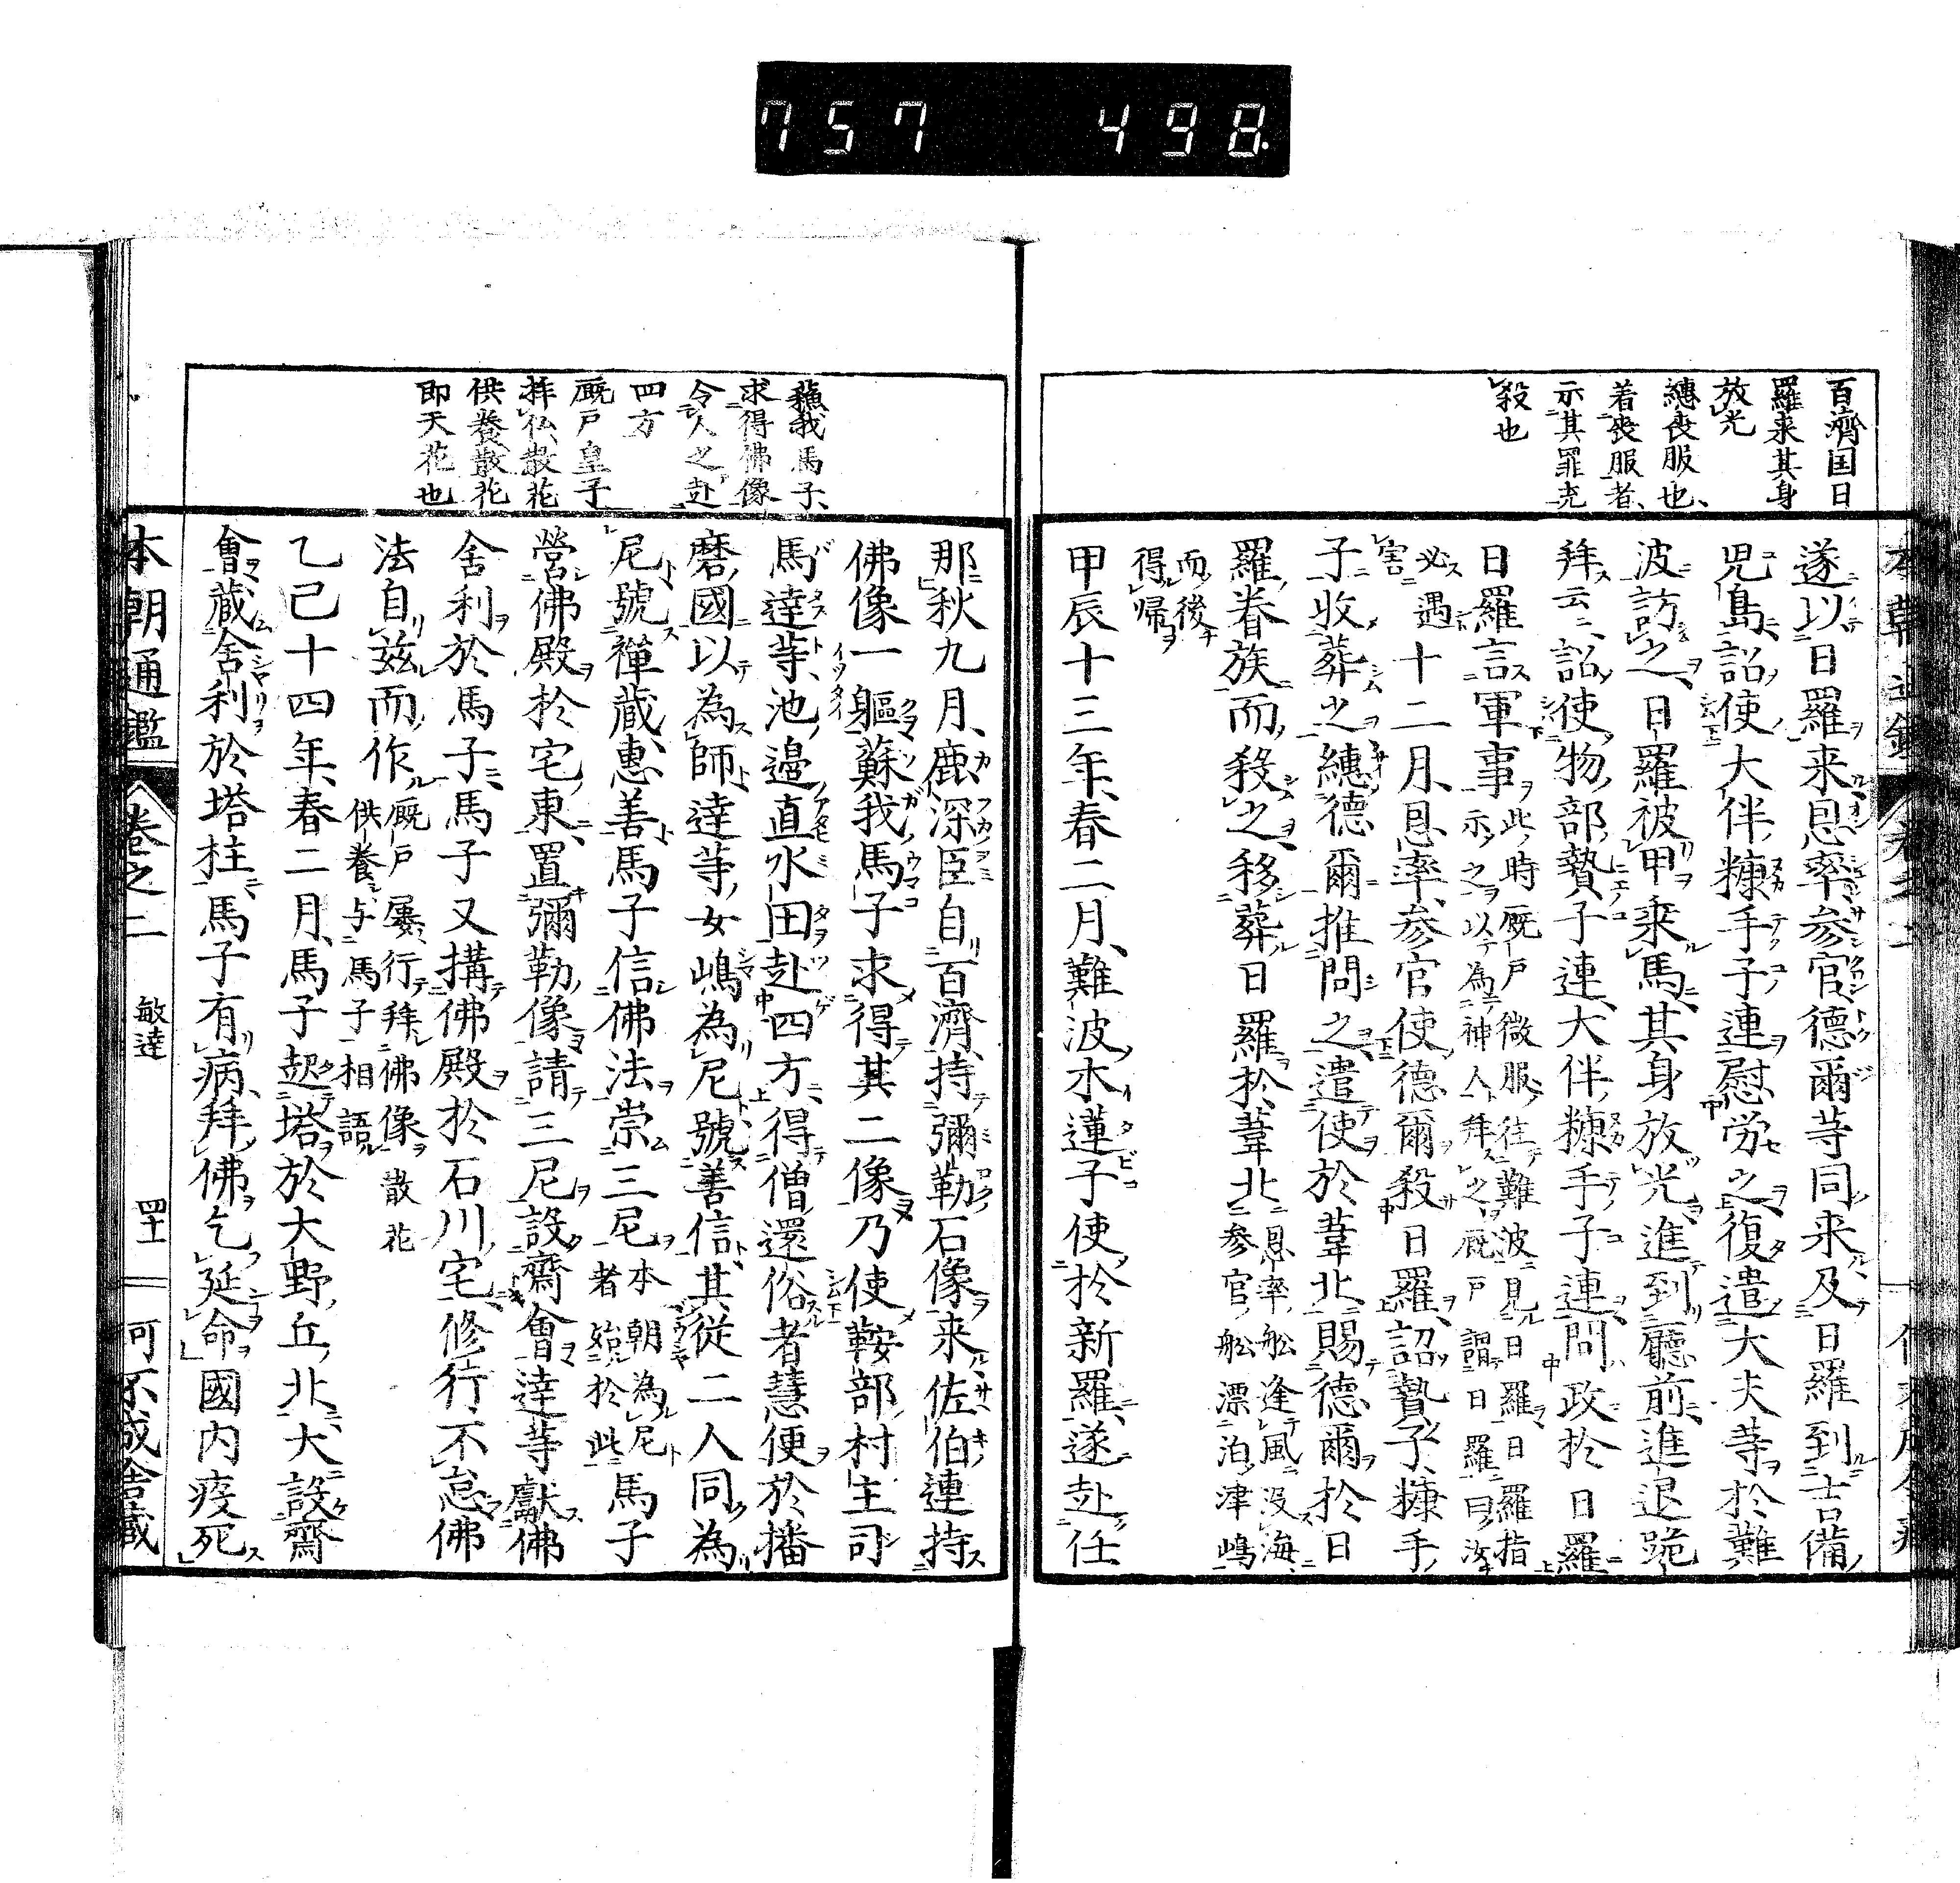 757 498
百濟国日
羅来其身
放光
纁喪服也、
着喪服者、
示其罪克
殺也
遂以日羅来恩率参官德爾䓁同来及日羅到吉備
児島詔使大伴糠手子連慰労之復遣大夫䓁於難
波訪之日羅被甲乗馬其身放光進到廳前進退跪
拜云云詔使物部贄子連大伴糠手子連問政於日羅
日羅言軍事此時厩戸微服往難波見日羅日羅指
示之以為神人拜之厩戸謂日羅曰汝
必遇
害
十二月恩率参官使德爾殺日羅詔贄子糠手
子收葬之纁德爾推問之遣使於葦北賜德爾於日
羅眷族而殺之移葬日羅於葦北恩率舩逢風没海
参官舩漂泊津嶋
而後
得帰
甲辰十三年春二月難波木蓮子使於新羅遂赴任
蘓我馬子、
求得佛像
令人之赴
四方
厩戸皇子
拝仏散花
供養散花
即天花也
那秋九月鹿深臣自百濟持彌勒石像来佐伯連持
佛像一軀蘇我馬子求得其二像乃使鞍部村主司
馬達䓁池邉直氷田赴四方得僧還俗者慧便於播
磨國以為師達䓁女嶋為尼號善信其従二人同為
尼號禪蔵惠善馬子信佛法崇三尼本朝為尼
者始於此馬子
營佛殿於宅東置彌勒像請三尼設齋會達䓁獻佛
舎利於馬子馬子又搆佛殿於石川宅修行不怠佛
法自兹而作厩戸屢行拜佛像散花
供養与馬子相語
乙巳十四年春二月馬子起塔於大野丘北大設齋
會藏舎利於塔柱馬子有病拜佛乞延命國内疫死
本朝通鑑 卷之二 敏達 四十一 可不成舎藏